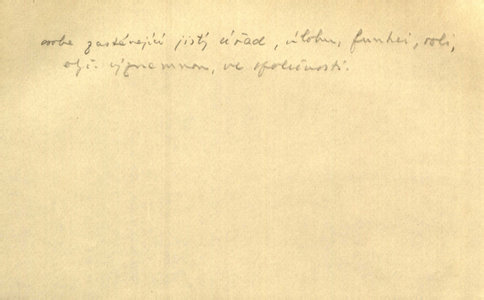 osoba zastávající jistý úřad, úlohu, funkci, roli,
obč. významnou, ve společnosti.